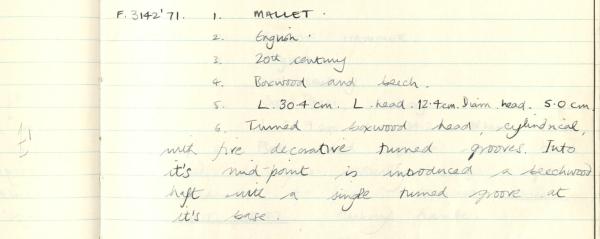 F.3142'71. 1. MALLET.
2. English.
3. 20th century
4. Boxwood and beech.
5. L. 30.4 cm. L. head. 12.4cm. Diam. head. 5.0 cm.
6. Turned boxwood head, cylindrical,
with five decorative turned grooves. Into
it's mid-point is introduced a beechwood
haft with a single turned groove at
it's base.